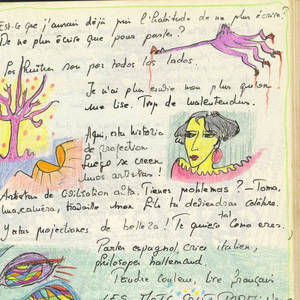 Est-ce que j'aurais déjà pris l'habitude de ne plus écrire?
De ne plus écrire que pour parler?
Los son por todos los lados.
Je n'ai plus envie non plus qu'on
me lise. Trop de malentendus.
Aqui, esta historia
de projection
luego se creen
unos artistas!
de civilisation alta. Tienes problemas? - Toma,
una camera, travaille mon fils tu deviendras celebre.
Y estas projectiones de belleza! Te quiero tal como eres.
Parler espagnol, crier italien,
philosopher hallemand.
couleur, lire français
LES MOTS SONT